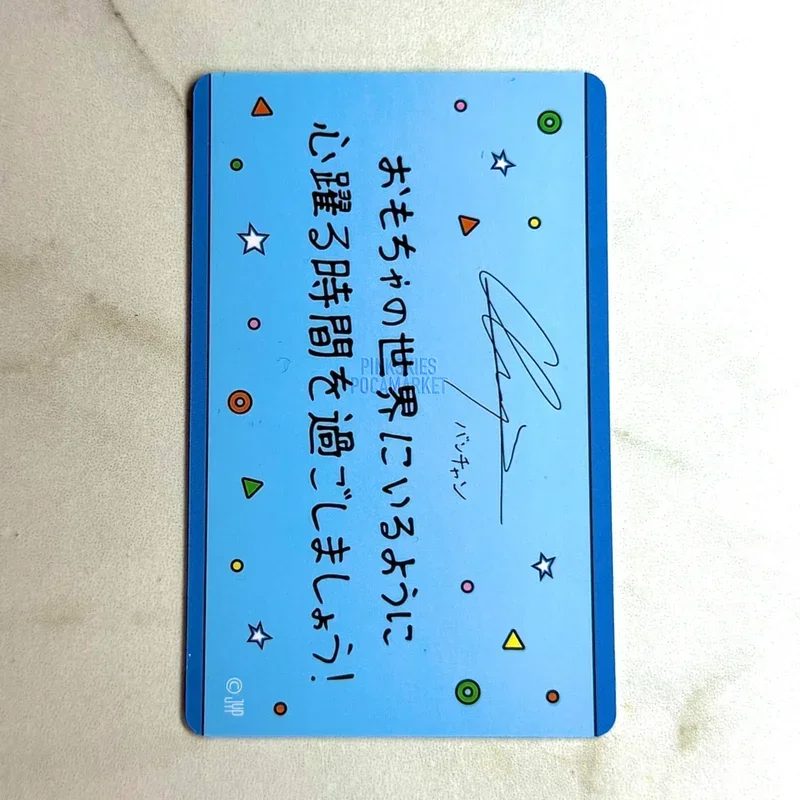 バンチャン
おもちゃの世界にいるように
心躍る時間を過ごしましょう!
©JYP
PINKSKIES
POCAMARKET